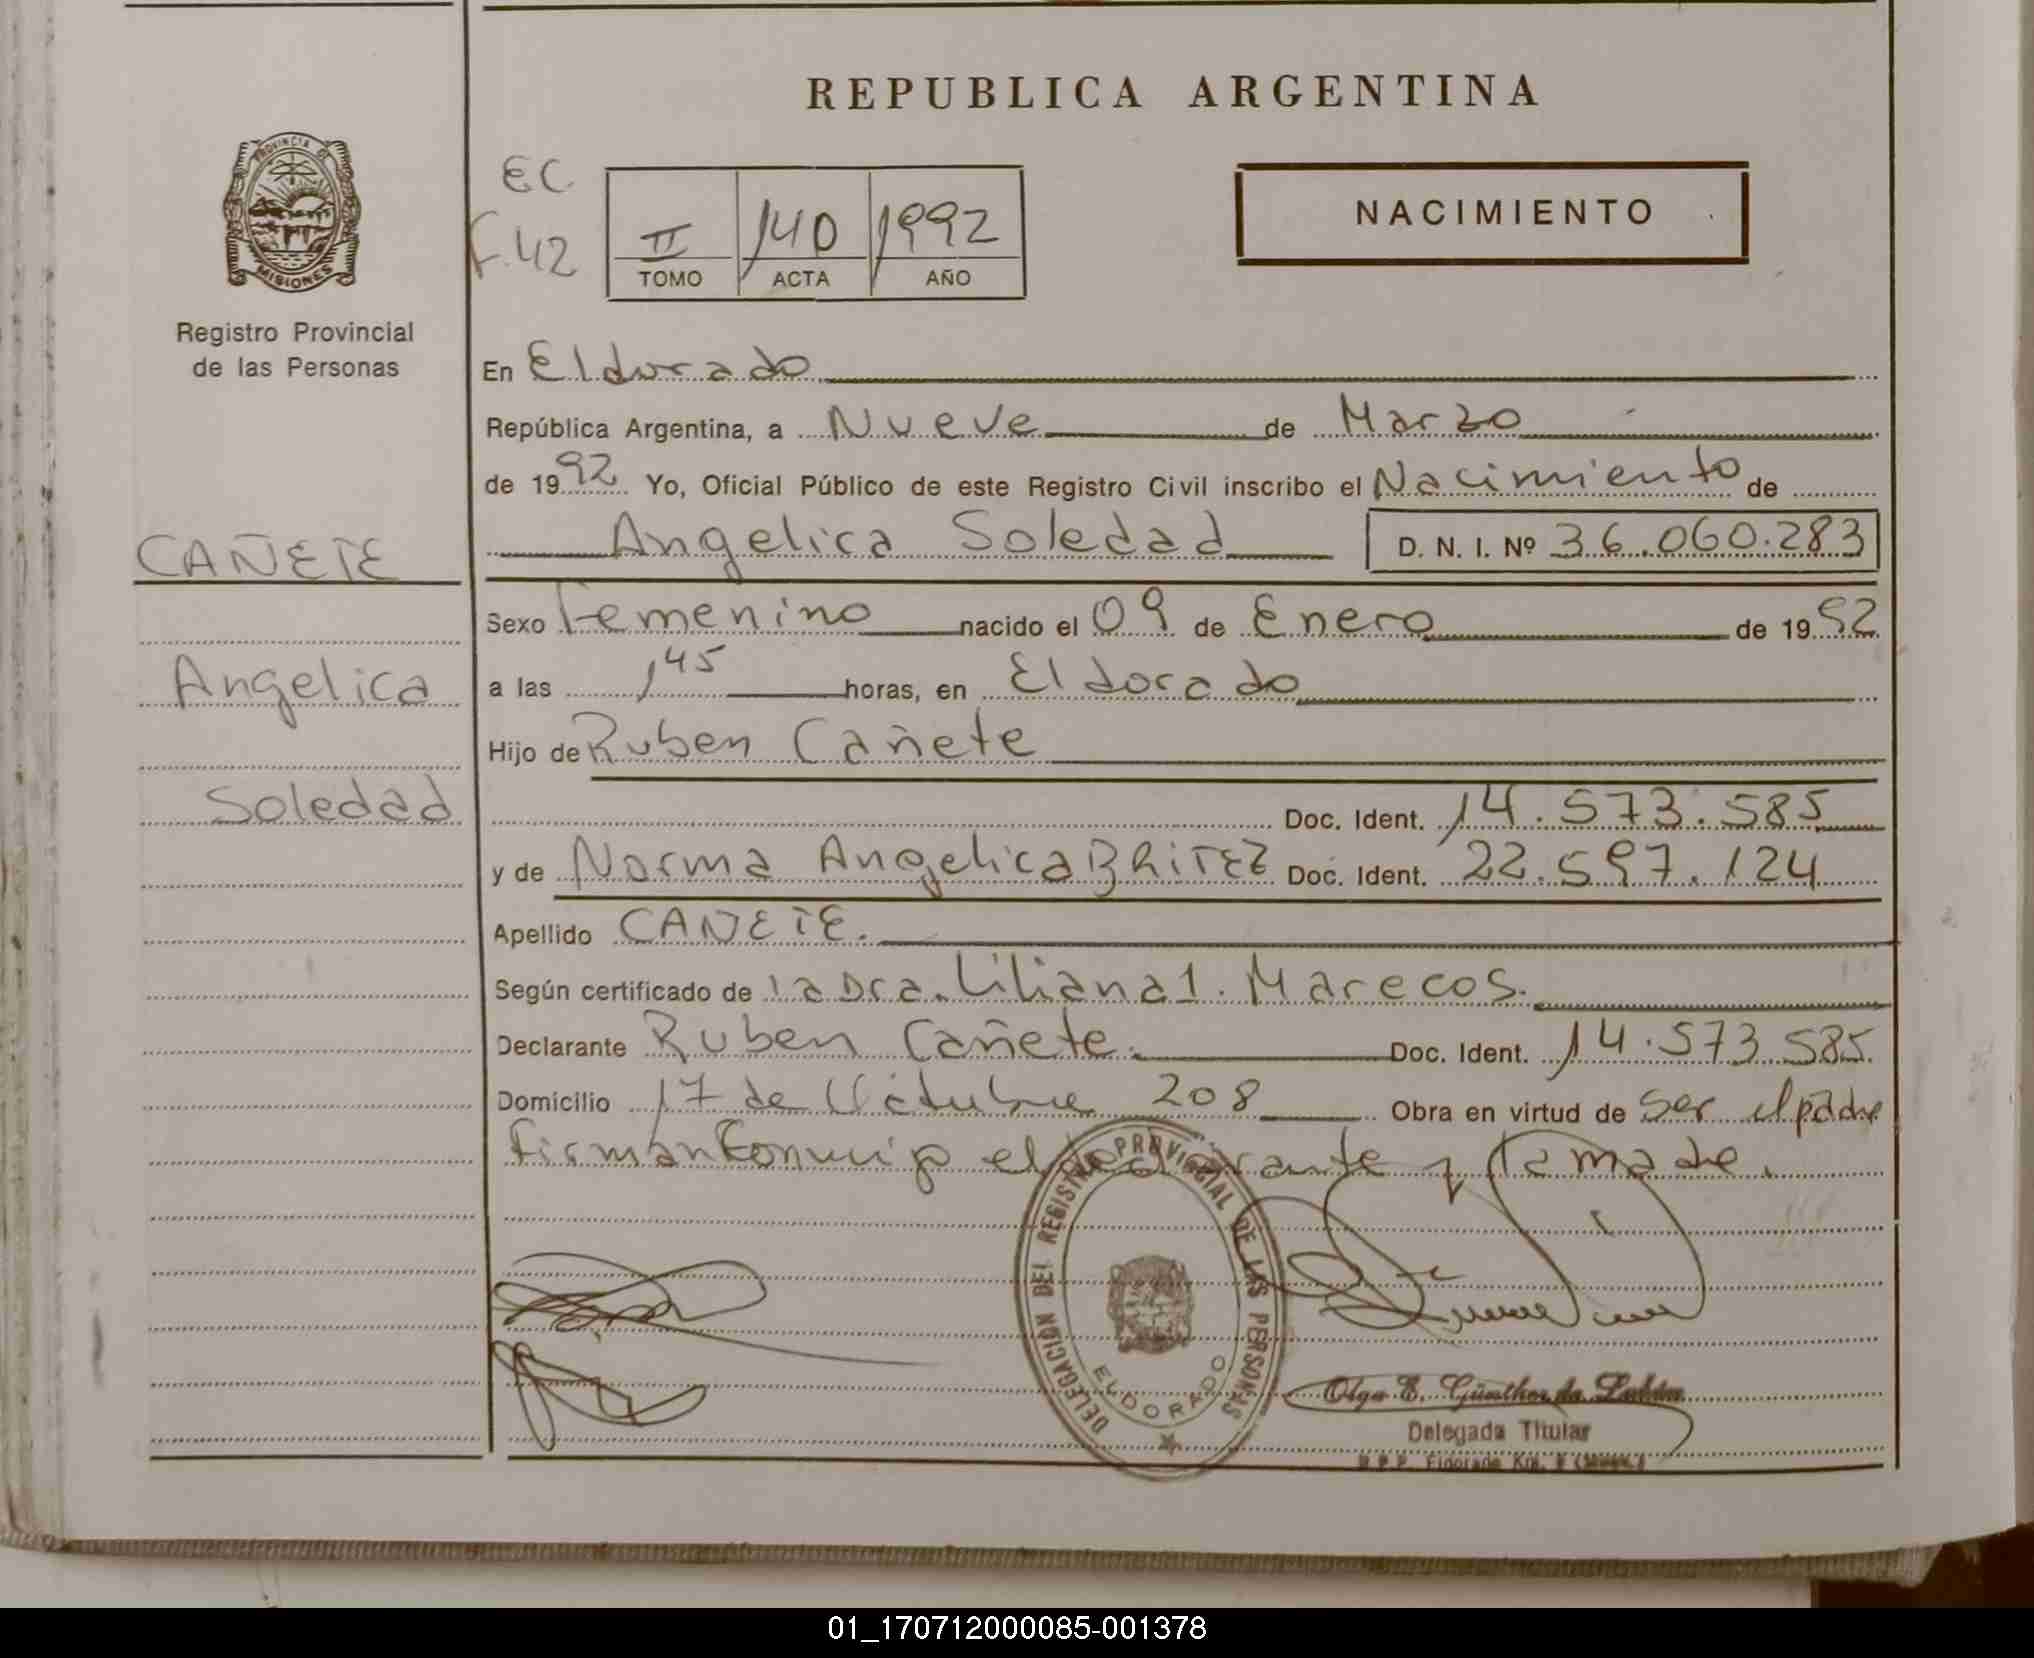 REPUBLICA ARGENTINA
PROVINCIA DE
MISIONES
Registro Provincial
de las Personas
EC
F.42
II 140 1992
TOMO ACTA AÑO
NACIMIENTO
En Eldorado
República Argentina, a Nueve de Marzo
de 1992 Yo, Oficial Público de este Registro Civil inscribo el Nacimiento de
CAÑETE
Angelica Soledad D. N. I. Nº 36.060.283
Sexo Femenino nacido el 09 de Enero de 1992
Angelica
a las 1,45 horas, en Eldorado
Hijo de Ruben Cañete
Soledad
Doc. Ident. 14.573.585
y de Norma Angelica BRITEZ Doc. Ident. 22.597.124
Apellido CAÑETE.
Según certificado de la Dra. Liliana I. Marecos.
Declarante Ruben Cañete. Doc. Ident. 14.573.585.
Domicilio 17 de Octubre 208 Obra en virtud de ser el padre
Firman conmigo el declarante y la madre.
DELEGACION DEL REGISTRO PROVINCIAL DE LAS PERSONAS
ELDORADO
Olga E. Günther de
Delegada Titular
R.P.P. Eldorado
01_170712000085-001378